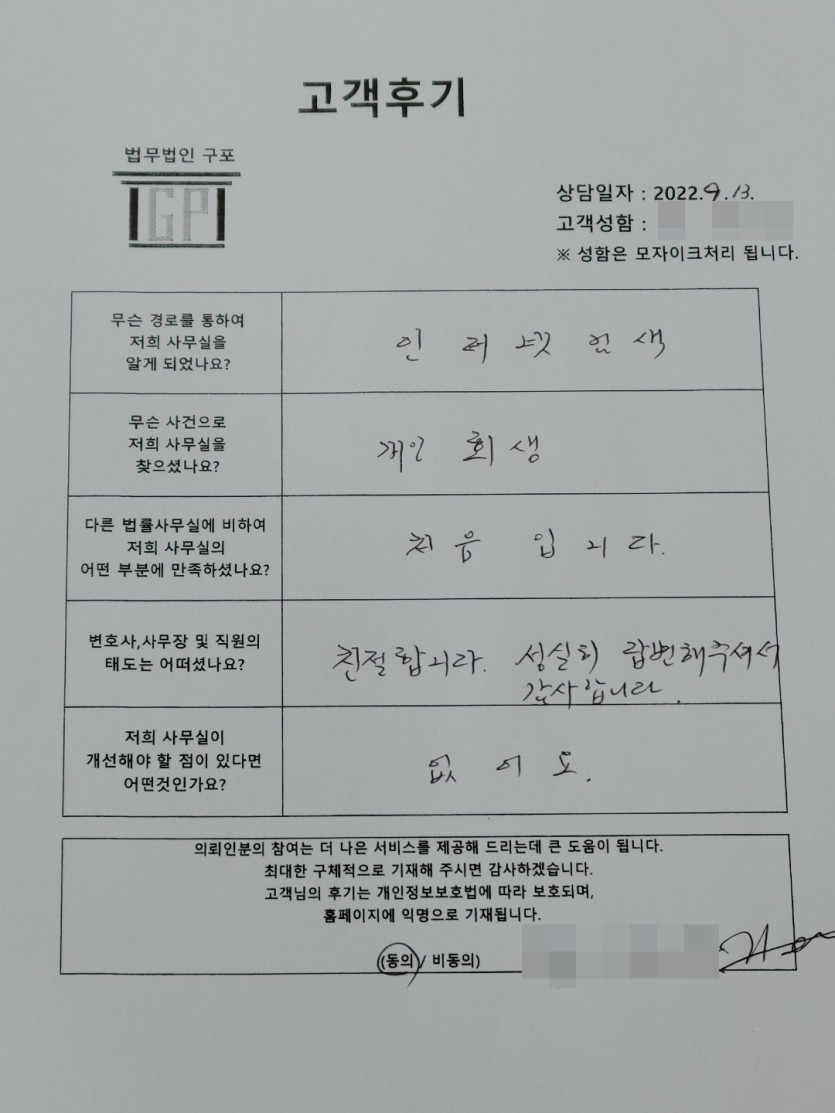 고객후기
법무법인 구포
GP
상담일자 : 2022.9.13.
고객성함 :
※ 성함은 모자이크처리 됩니다.
무슨 경로를 통하여
저희 사무실을
알게 되었나요?
인터넷 검색
무슨 사건으로
저희 사무실을
찾으셨나요?
개인 회생
다른 법률사무실에 비하여
저희 사무실의
어떤 부분에 만족하셨나요?
처음 입니다.
변호사,사무장 및 직원의
태도는 어떠셨나요?
친절합니다. 성실히 답변해주셔서
감사합니다.
저희 사무실이
개선해야 할 점이 있다면
어떤것인가요?
없어요.
의뢰인분의 참여는 더 나은 서비스를 제공해 드리는데 큰 도움이 됩니다.
최대한 구체적으로 기재해 주시면 감사하겠습니다.
고객님의 후기는 개인정보보호법에 따라 보호되며,
홈페이지에 익명으로 기재됩니다.
(동의 / 비동의)